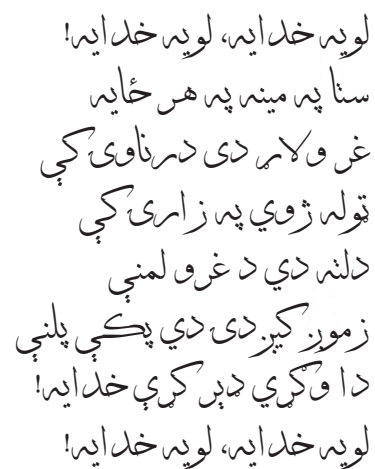 لويه خدايه، لويه خدايه!
ستا په مينه په هر ځايه
غر ولاړ دی درناوی کې
ټوله ژوي په زاری کې
دلته دي د غرو لمنې
زموږ کيږدی دي پکې پلنې
دا وګړي ډېر کړې خدايه!
لويه خدايه، لويه خدايه!